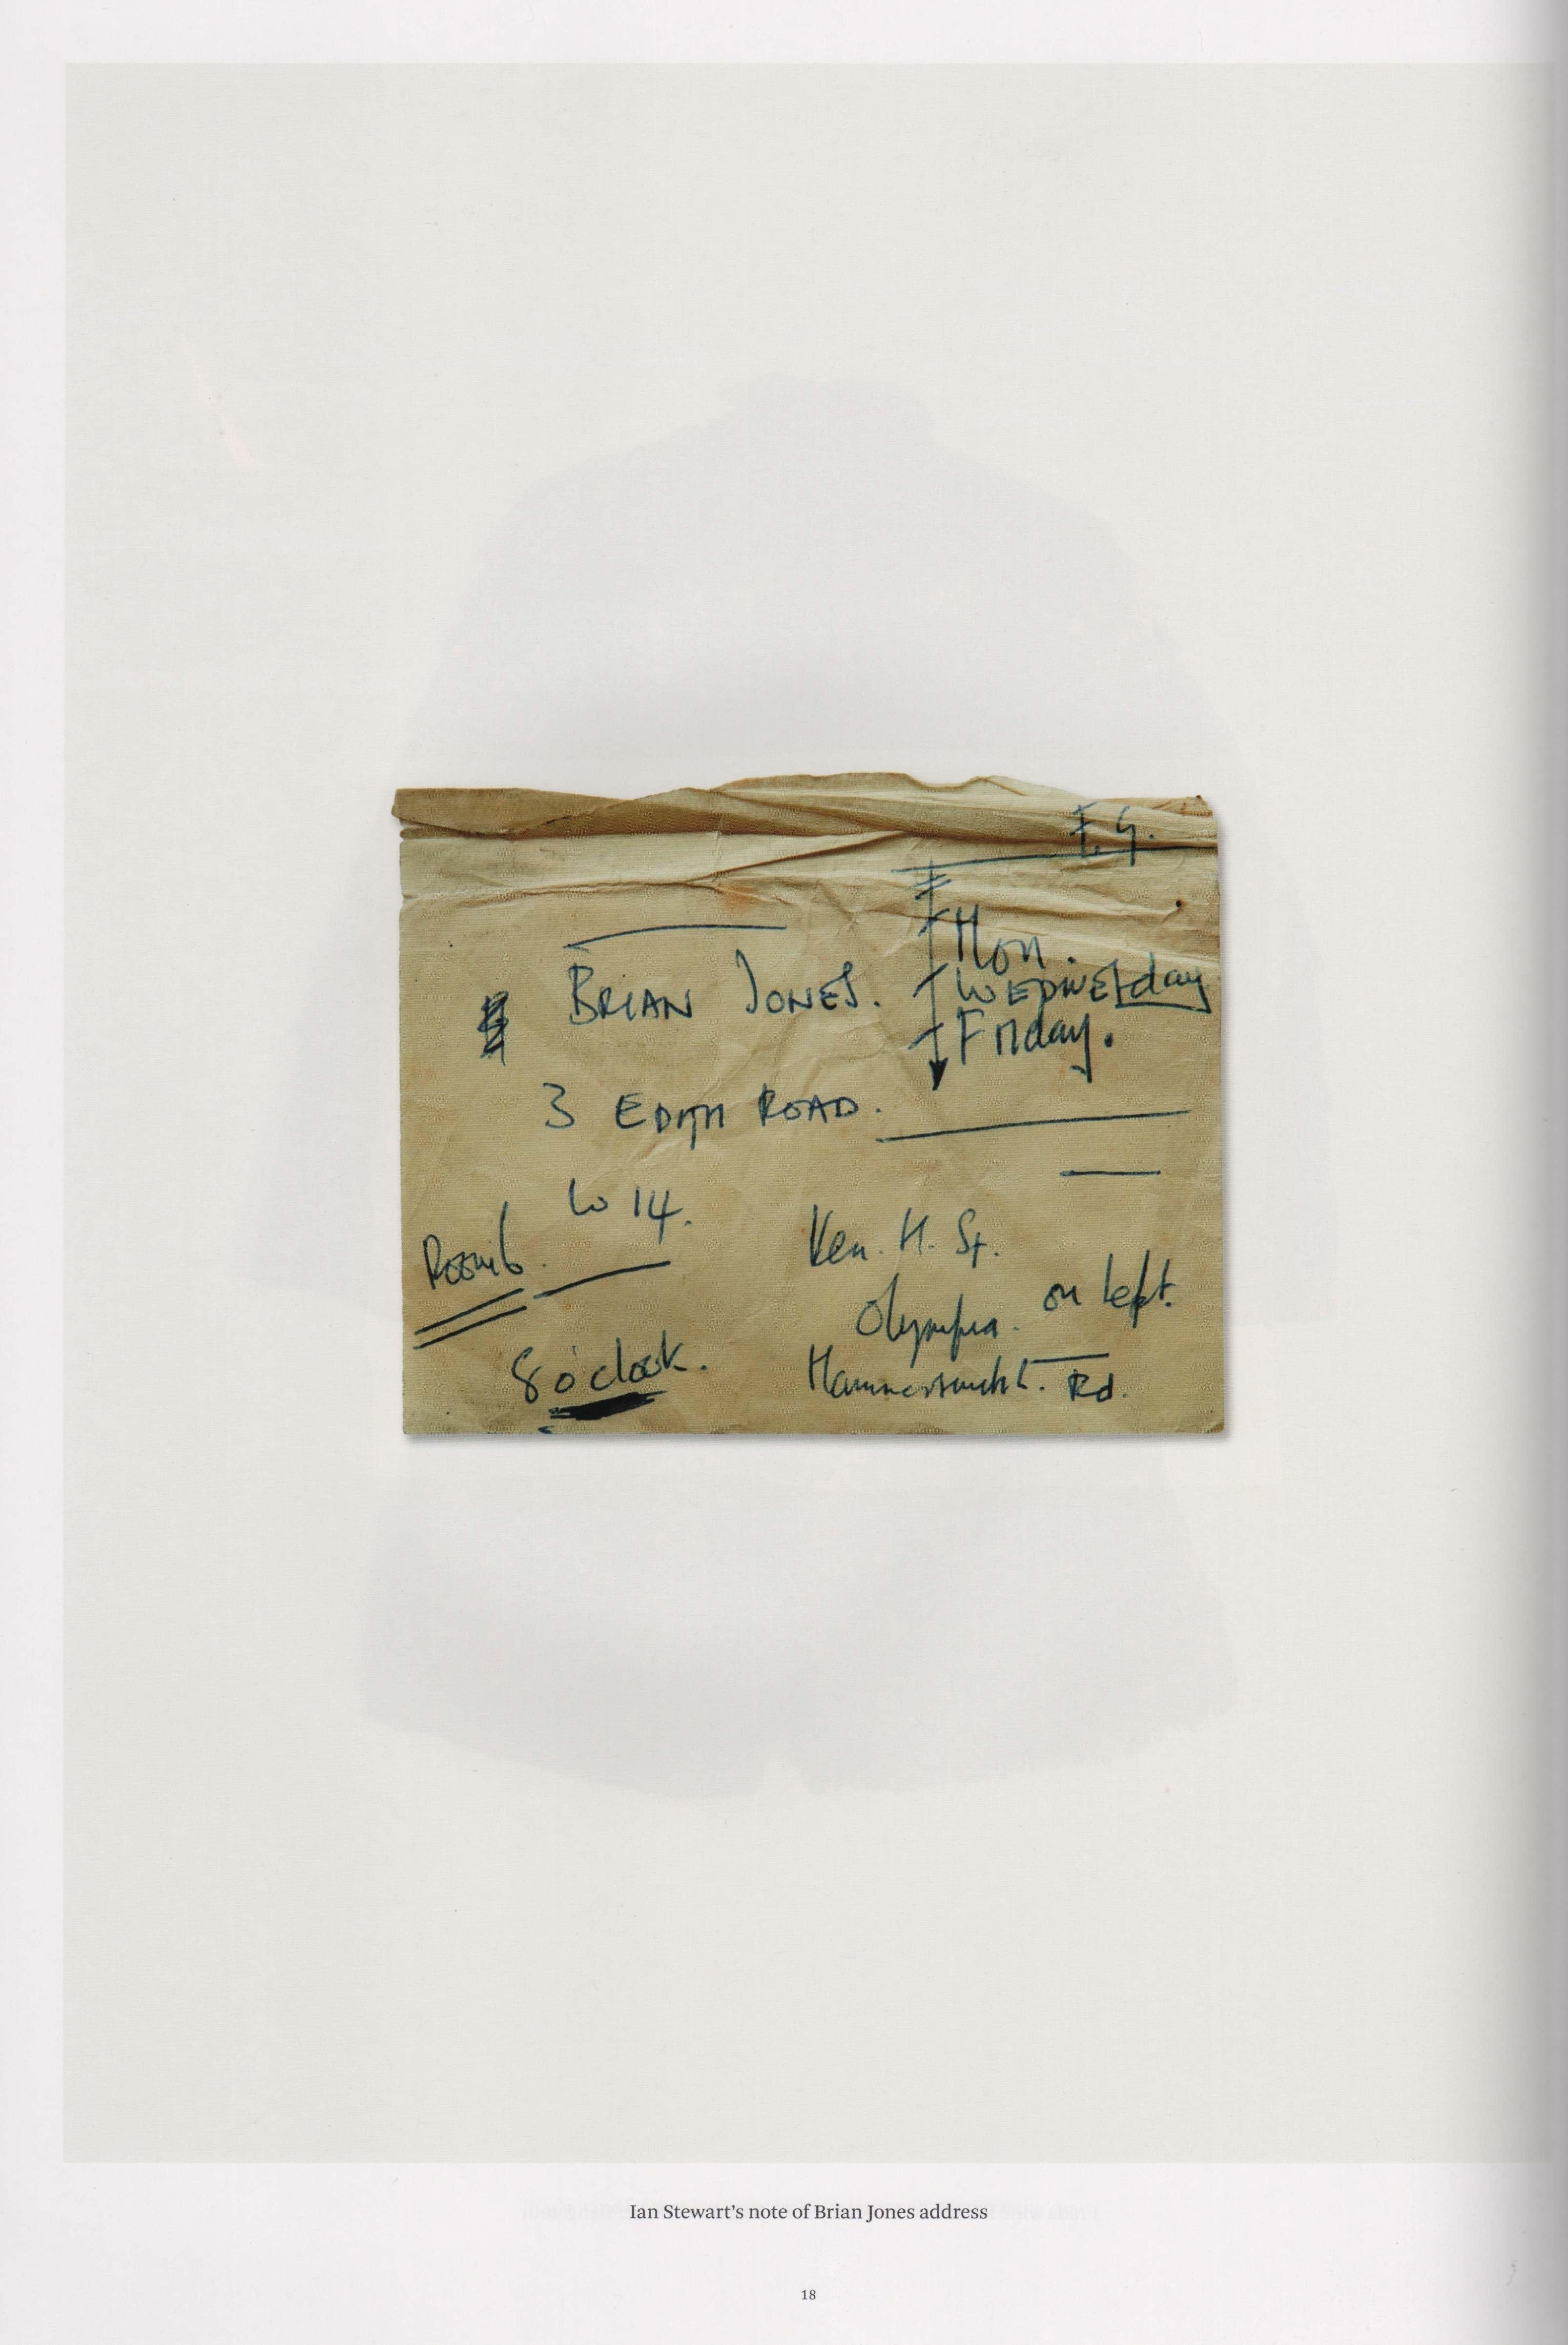 E.G.
Mon.
BRIAN JONES.
WEDNESday
Friday.
3 EDITH ROAD.
W 14.
Room 6.
8 o'clock.
Ken. H. St.
Olympia. on left.
Hammersmith. Rd.
Ian Stewart’s note of Brian Jones address
18